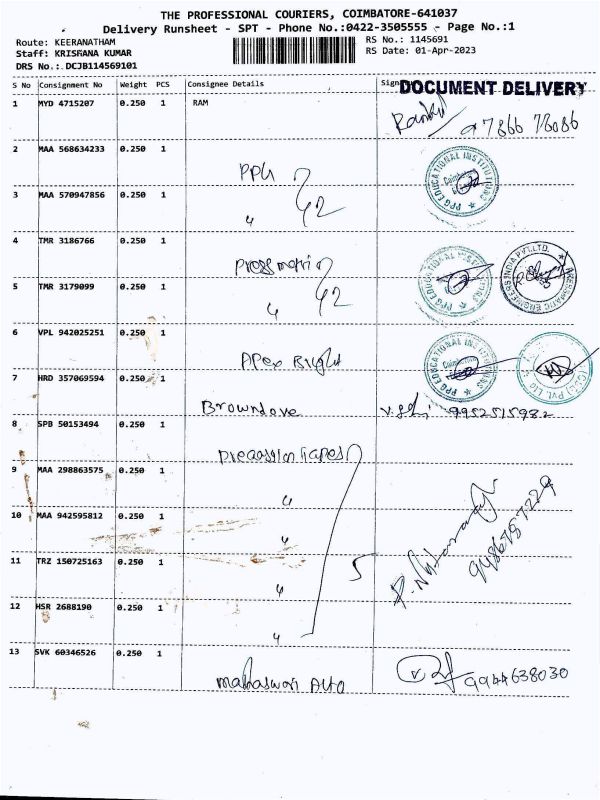 THE PROFESSIONAL COURIERS, COIMBATORE-641037
Delivery Runsheet - SPT - Phone No.:0422-3505555 - Page No.:1
Route: KEERANATHAM
RS No.: 1145691
Staff: KRISHANA KUMAR
RS Date: 01-Apr-2023
DRS No.: DCJB114569101
S No Consignment No Weight PCS Consignee Details
DOCUMENT DELIVERY
1 MYD 4715207 0.250 1 RAM
97866 78086
2 MAA 568634233 0.250 1 PPG
PPG EDUCATIONAL INSTITUTIONS
3 MAA 570947856 0.250 1 "
4 TMR 3186766 0.250 1 Pressmatic
PPG EDUCATIONAL INSTITUTIONS
5 TMR 3179099 0.250 1 "
6 VPL 942025251 0.250 1 Apex Bright
PPG EDUCATIONAL INSTITUTIONS
7 HRD 357069594 0.250 1 Browndove 9952515982
8 SPB 50153494 0.250 1
9 MAA 298863575 0.250 1 "
10 MAA 942595812 0.250 1 "
9486757229
11 TRZ 150725163 0.250 1 "
5
12 HSR 2688190 0.250 1 "
13 SVK 60346526 0.250 1 Mahaswari Auto 9944638030